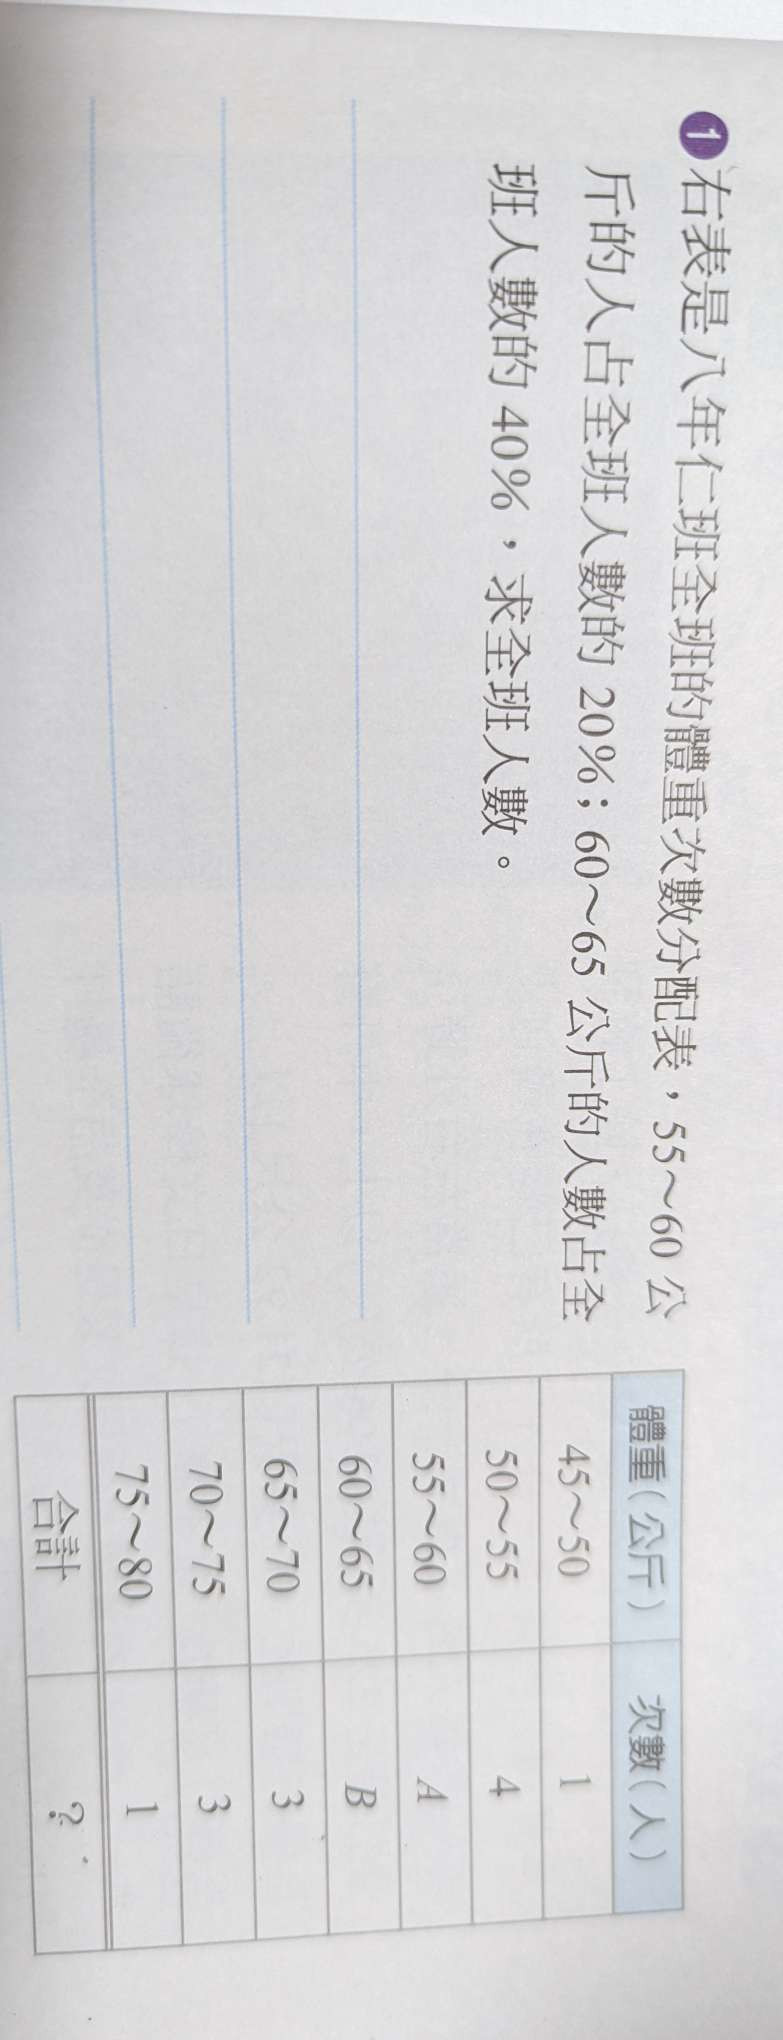 1 右表是八年仁班全班的體重次數分配表，55～60 公
斤的人占全班人數的 20%；60～65 公斤的人數占全
班人數的 40%，求全班人數。
體重(公斤) 次數(人)
45～50 1
50～55 4
55～60 A
60～65 B
65～70 3
70～75 3
75～80 1
合計 ?